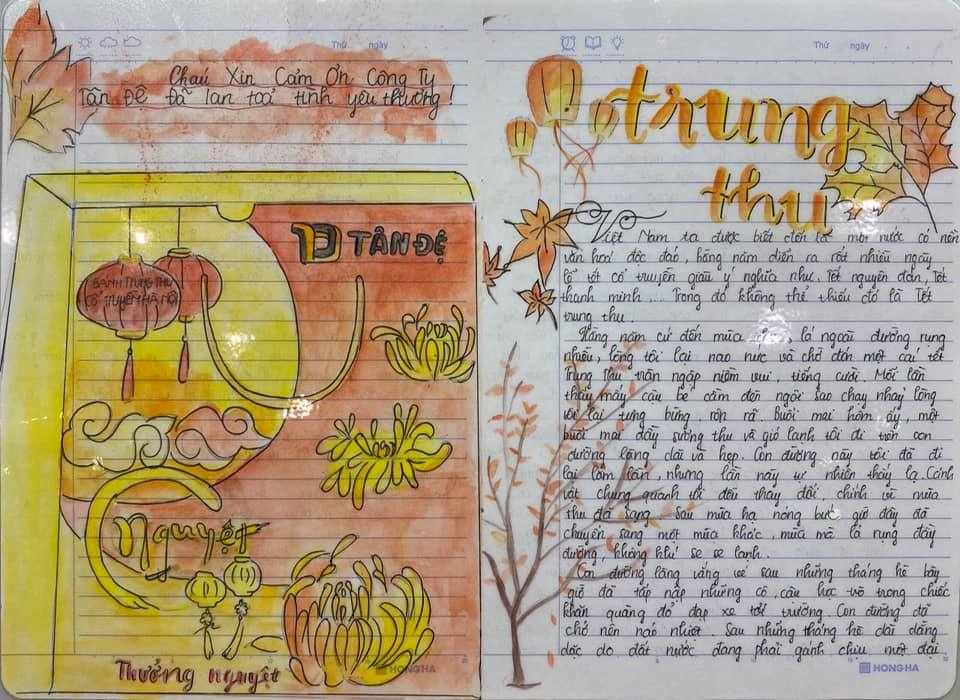 Thứ ngày
Cháu Xin Cảm Ơn Công Ty
Tân Đệ Đã lan toả tình yêu thương!
TÂN ĐỆ
BÁNH TRUNG THU
CỔ TRUYỀN HÀ NỘI
Nguyệt
Thưởng nguyệt
HONGHA
Thứ ngày
trung
thu
Việt Nam ta được biết đến là một nước có nền
văn hoá độc đáo, hằng năm diễn ra rất nhiều ngày
lễ tết cổ truyền giàu ý nghĩa như: Tết nguyên đán, Tết
thanh minh... Trong đó không thể thiếu đó là Tết
trung thu.
Hằng năm cứ đến mùa lá ngoài đường rụng
nhiều, lòng tôi lại nao nức và chờ đón một cái tết
Trung thu tràn ngập niềm vui, tiếng cười. Mỗi lần
thấy mấy cậu bé cầm đèn ngôi sao chạy nhảy lòng
tôi lại tưng bừng, rộn rã. Buổi mai hôm ấy, một
buổi mai đầy sương thu và gió lạnh tôi đi trên con
đường làng dài và hẹp. Con đường này tôi đã đi
lại lắm lần, nhưng lần này tự nhiên thấy lạ. Cảnh
vật chung quanh tôi đều thay đổi, chính vì mùa
thu đã sang. Sau mùa hạ nóng bức giờ đây đã
chuyển sang một mùa khác, mùa mà lá rụng đầy
đường, không khí se se lạnh.
Con đường làng vắng vẻ sau những tháng hè bây
giờ đã tấp nập những cô, cậu học trò trong chiếc
khăn quàng đỏ đạp xe tới trường. Con đường đã
trở nên náo nhiệt. Sau những tháng hè dài đằng
đẵc do đất nước đang phải gánh chịu một đại
HONGHA